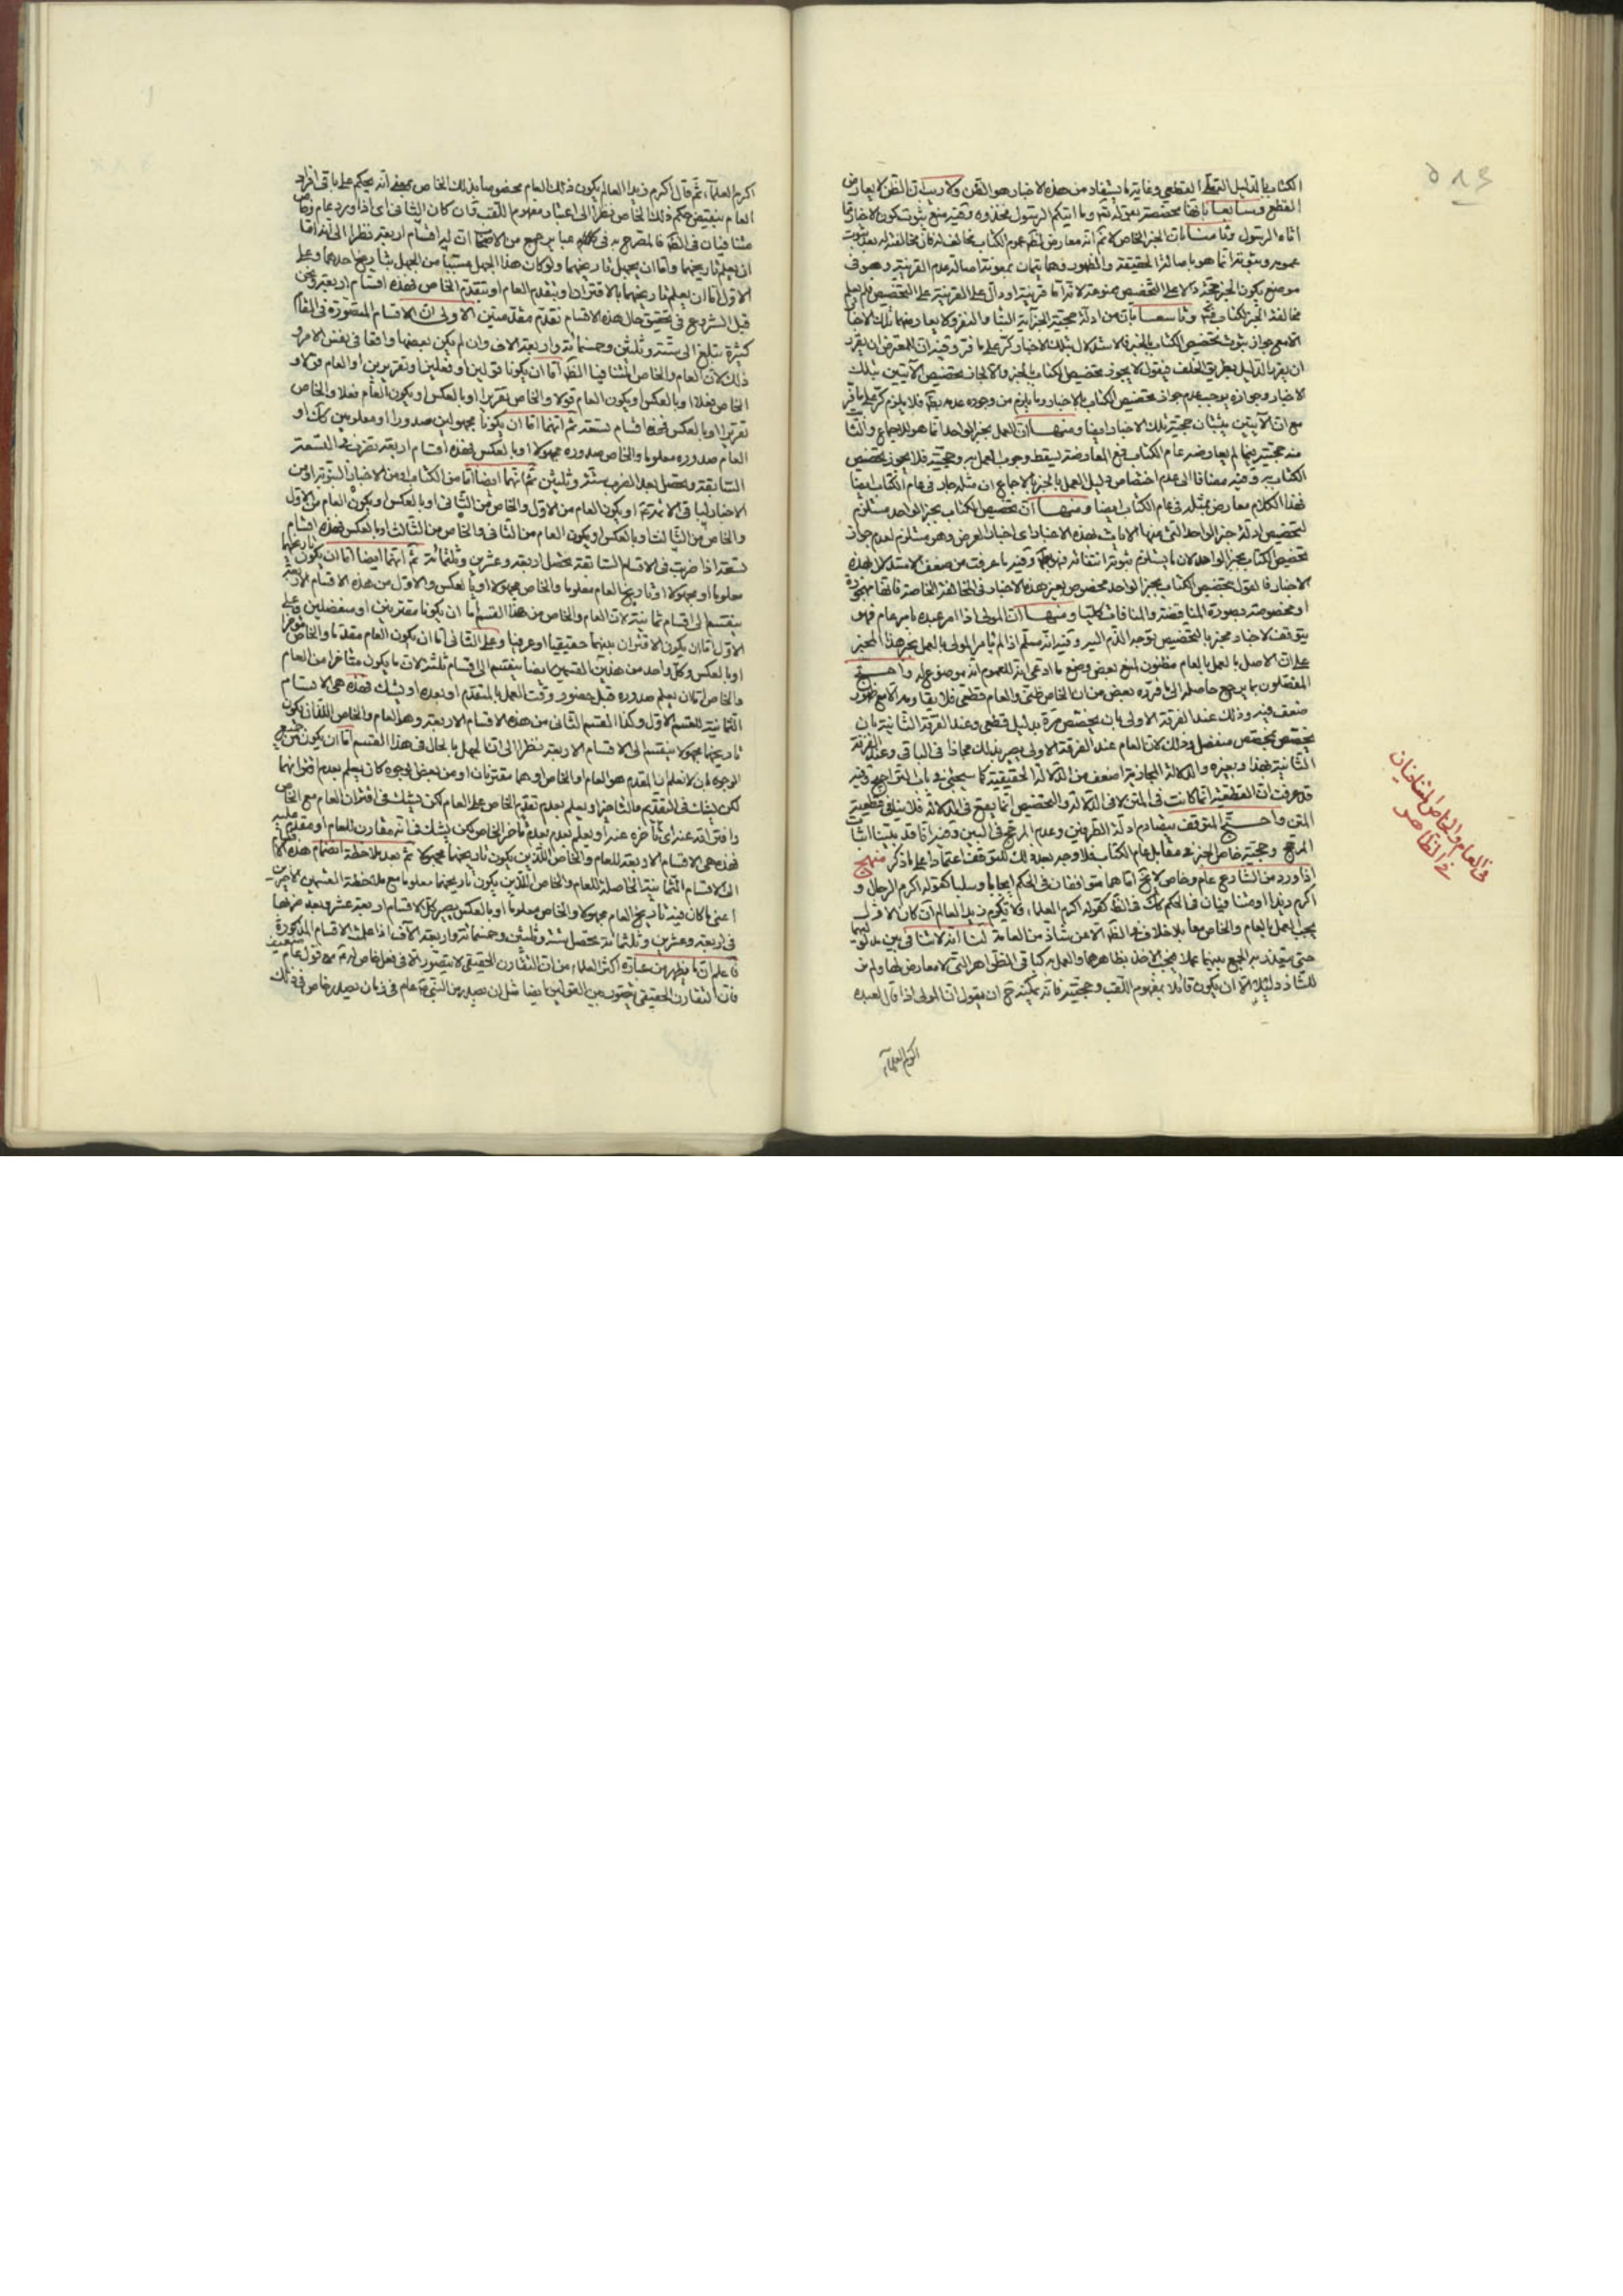 الكتاب بالدليل القطعي وغاية ما يستفاد من هذه الاخبار هو الظن ولا ريب ان الظن لا يعارض
القطع وسابعا بانها مختصة بقوله تم وما اتيكم الرسول فخذوه وفيه منع ثبوت كون الاخبار مما
اتاه الرسول وثامنا بان الخبر الخاص لا تم انه معارض لظهر عموم الكتاب
عمومه وثبوته انما هو باصالة الحقيقة والظهور وهما يتمان بمعونة اصالة عدم القرينة وهو في
موضع يكون الخبر حجة دالا على التخصيص ممنوعة لانه اما قرينة او دال على القرينة على التخصيص فلم يعلم
مخالفة الخبر لكتاب وتاسعا بان من ادلة حجية الخبر اية النبأ والنفر ولا يعارضهما تلك الاخبار
الا مع جواز ثبوت تخصيص الكتاب بالخبر فالاستدلال بتلك الاخبار كر على ما فر وفيه ان للمعترض ان يقرر
ان يقرر الدليل بطريق الخلف فيقول لا يجوز تخصيص الكتاب بالخبر والا لجاز تخصيص الآيتين بتلك
الاخبار وجوازه يوجب عدم جواز تخصيص الكتاب بالاخبار وما يلزم من وجوده عدمه بط فلا يلزم كر على ما فر
مع ان الآيتين يثبتان حجية تلك الاخبار ايضا ومنها ان العمل بخبر الواحد انما هو للاجماع والثابت
منه حجيته فيما لم يعارضه عام الكتاب فمع المعارضة يسقط وجوب العمل به وحجيته فلا يجوز تخصيص
الكتاب به وفيه مضافا الى عدم اختصاص دليل العمل بالخبر بالاجماع ان مثله جار في عام الكتاب ايضا
فهذا الكلام معارض بمثله في عام الكتاب ايضا ومنها ان تخصيص الكتاب بخبر الواحد مستلزم
لتخصيص ادلة خبر الواحد التي منها الايات بهذه الاخبار اي اخبار العرض وهو مستلزم لعدم جواز
تخصيص الكتاب بخبر الواحد لان ما يستلزم ثبوته انتفائه فهو بط وفيه ما عرفت من ضعف الاستدلال بهذه
الاخبار فالقول بتخصيص الكتاب بخبر الواحد مخصوص بغير هذه الاخبار في المخالفة الخاصة فانها مهجورة
او مخصوصة بصورة المناقضة والمنافاة كليا ومنها ان المولى اذا امر عبده بامر عام فهو
يتوقف لاخبار مخبر بالتخصيص توجه الذم اليه وفيه انه مسلم اذا لم يامر المولى بالعمل بخبر هذا المخبر
على ان الاصل بالعمل بالعام مظنون لمنع بعض وضع ما ادعى انه للعموم انه موضوع له واحتج
المفصلون بما يرجع حاصله الى ما قرره بعض من ان الخاص ظني والعام قطعي فلا يقاومه الا مع ظهور
ضعف فيه وذلك عند الفرقة الاولى بان يخصص مرة بدليل قطعي وعند الفرقة الثانية بان
يخصص بمخصص منفصل وذلك لان العام عند الفرقة الاولى يصير بذلك مجازا في الباقي وعند الفرقة
الثانية بهذا وبغيره والدلالة المجازية اضعف من الدلالة الحقيقية كما سيجئ في باب التراجيح وفيه
قد عرفت ان القطعية انما كانت في المتن لا في الدلالة والتخصيص انما يقع في الدلالة فلا ينافي قطعية
المتن واحتج المتوقف بتصادم ادلة الطرفين وعدم المرجح في البين وفيه انا قد بينا اثبات
المرجح وحجية خاص الخبر في مقابل عام الكتاب فلا وجه بعد ذلك للتوقف اعتمادا على ما ذكر منهج
اذا ورد من الشارع عام وخاص لا يخ اما هما متوافقان في الحكم ايجابا وسلبا كقوله اكرم الرجال و
اكرم زيدا او متنافيان في الحكم كك في الظ كقوله اكرم العلماء ولا تكرم زيد العالم ان كان الاول
يجب العمل بالعام والخاص معا بلا خلاف في الظ الا عن شاذ من العامة لنا انه لا تنافي بين مدلوليهما
حتى يتعذر الجمع بينهما عملا فيجب الاخذ بظاهرهما والعمل به كباقي الظواهر التي لا معارض لها ولم نر
للشاذ دليلا الا ان يكون قائلا بمفهوم اللقب وحجيته فانه يمكنه ح ان يقول ان المولى اذا قال لعبده
اكرم العلماء
في العام والخاص المتنافيان
في الظاهر
اكرم العلماء ثم قال اكرم زيدا العالم يكون ذلك العام مخصوصا بذلك الخاص بمعنى انه يحكم على باقي افراد
العام بنقيض حكم ذلك الخاص نظرا الى اعتبار مفهوم اللقب وان كان الثاني اي اذا ورد عام وخاص
متنافيان في الظ فالمصرح به في عباير جمع من الاصحاب ان له اقسام اربعة نظرا الى انه اما
ان يعلم تاريخهما واما ان يجهل تاريخهما ولو كان هذا الجهل مسببا من الجهل بتاريخ احدهما وعلى
الاول اما ان يعلم تاريخهما بالاقتران او بتقدم العام او بتقدم الخاص فهذه اقسام اربعة ونحن
قبل الشروع في تحقيق حال هذه الاقسام نقدم مقدمتين الاولى ان الاقسام المتصورة في المقام
كثيرة تبلغ الى ستة وثلثين وخمسمائة واربعة الاف وان لم يكن بعضها واقعا في نفس الامر و
ذلك لان العام والخاص المتنافيا الظ اما ان يكونا قولين او فعلين او تقريرين او العام قولا و
الخاص فعلا او بالعكس او يكون العام قولا والخاص تقريرا او بالعكس او يكون العام فعلا والخاص
تقريرا او بالعكس فهذه اقسام تسعة ثم انهما اما ان يكونا مجهولين صدورا او معلومين كك او
العام صدوره معلوما والخاص صدوره مجهولا او بالعكس فهذه اقسام اربعة تضرب في التسعة
السابقة ويحصل بعد الضرب ستة وثلثين ثم انهما ايضا اما من الكتاب او من الاخبار النبوية او من
الاخبار لباقي الائمة او يكون العام من الاول والخاص من الثاني او بالعكس او يكون العام من الاول
والخاص من الثالث او بالعكس او يكون العام من الثاني والخاص من الثالث او بالعكس فهذه اقسام
تسعة اذا ضربت في الاقسام السابقة يحصل اربعة وعشرين وثلثمائة ثم انهما ايضا اما ان يكون تاريخهما
معلوما او مجهولا او تاريخ العام معلوما والخاص مجهولا او بالعكس والاول من هذه الاقسام الاربعة
ينقسم الى اقسام ثمانية لان العام والخاص من هذا القسم اما ان يكونا مقترنين او منفصلين وعلى
الاول اما ان يكون الاقتران بينهما حقيقيا او عرفيا وعلى الثاني اما ان يكون العام مقدما والخاص مؤخرا
او بالعكس وكل واحد من هذين القسمين ايضا ينقسم الى اقسام ثلثة لان ما يكون متاخرا من العام
والخاص اما ان يعلم صدوره قبل حضور وقت العمل بالمتقدم او بعده او يشك فهذه هي الاقسام
الثمانية للقسم الاول وكذا القسم الثاني من هذه الاقسام الاربعة وهو العام والخاص اللذان يكون
تاريخهما مجهولا ينقسم الى الاقسام الاربعة نظرا الى ان الجهل بالحال في هذا القسم اما ان يكون من جميع
الوجوه بان لا نعلم ان المقدم هو العام او الخاص او هما مقترنان او من بعض الوجوه كان يعلم بعدم اقترانهما
لكن يشك في التقديم والتاخير او يعلم بعدم تقديم الخاص على العام لكن يشك في اقتران العام مع الخاص
وافتراقه عنه اي تاخره عنه او يعلم بعدم تأخر الخاص لكن يشك في انه مقارن للعام او مقدم عليه
فهذه هي الاقسام الاربعة للعام والخاص اللذين يكون تاريخهما مجهولا ثم بعد ملاحظة انضمام هذه الاقسام
الى الاقسام الثمانية الحاصلة للعام والخاص اللذين يكون تاريخهما معلوما مع ملاحظة القسمين الاخيرين
اعني ما كان فيه تاريخ العام مجهولا والخاص معلوما او بالعكس يصير كل الاقسام اربعة عشر وبعد ضربها
في اربعة وعشرين وثلثمائة يحصل ستة وثلثين وخمسمائة واربعة الآف اذا علمت الاقسام المذكورة
فاعلم ان ما يظهر من عبارة اكثر العلماء من ان التقارن الحقيقي لا يتصور الا في فعل خاص له مع قول عام ضعيف
فان التقارن الحقيقي يتصور بين القولين ايضا مثل ان يصدر من النبي عام في زمان يصدر خاص في ذلك